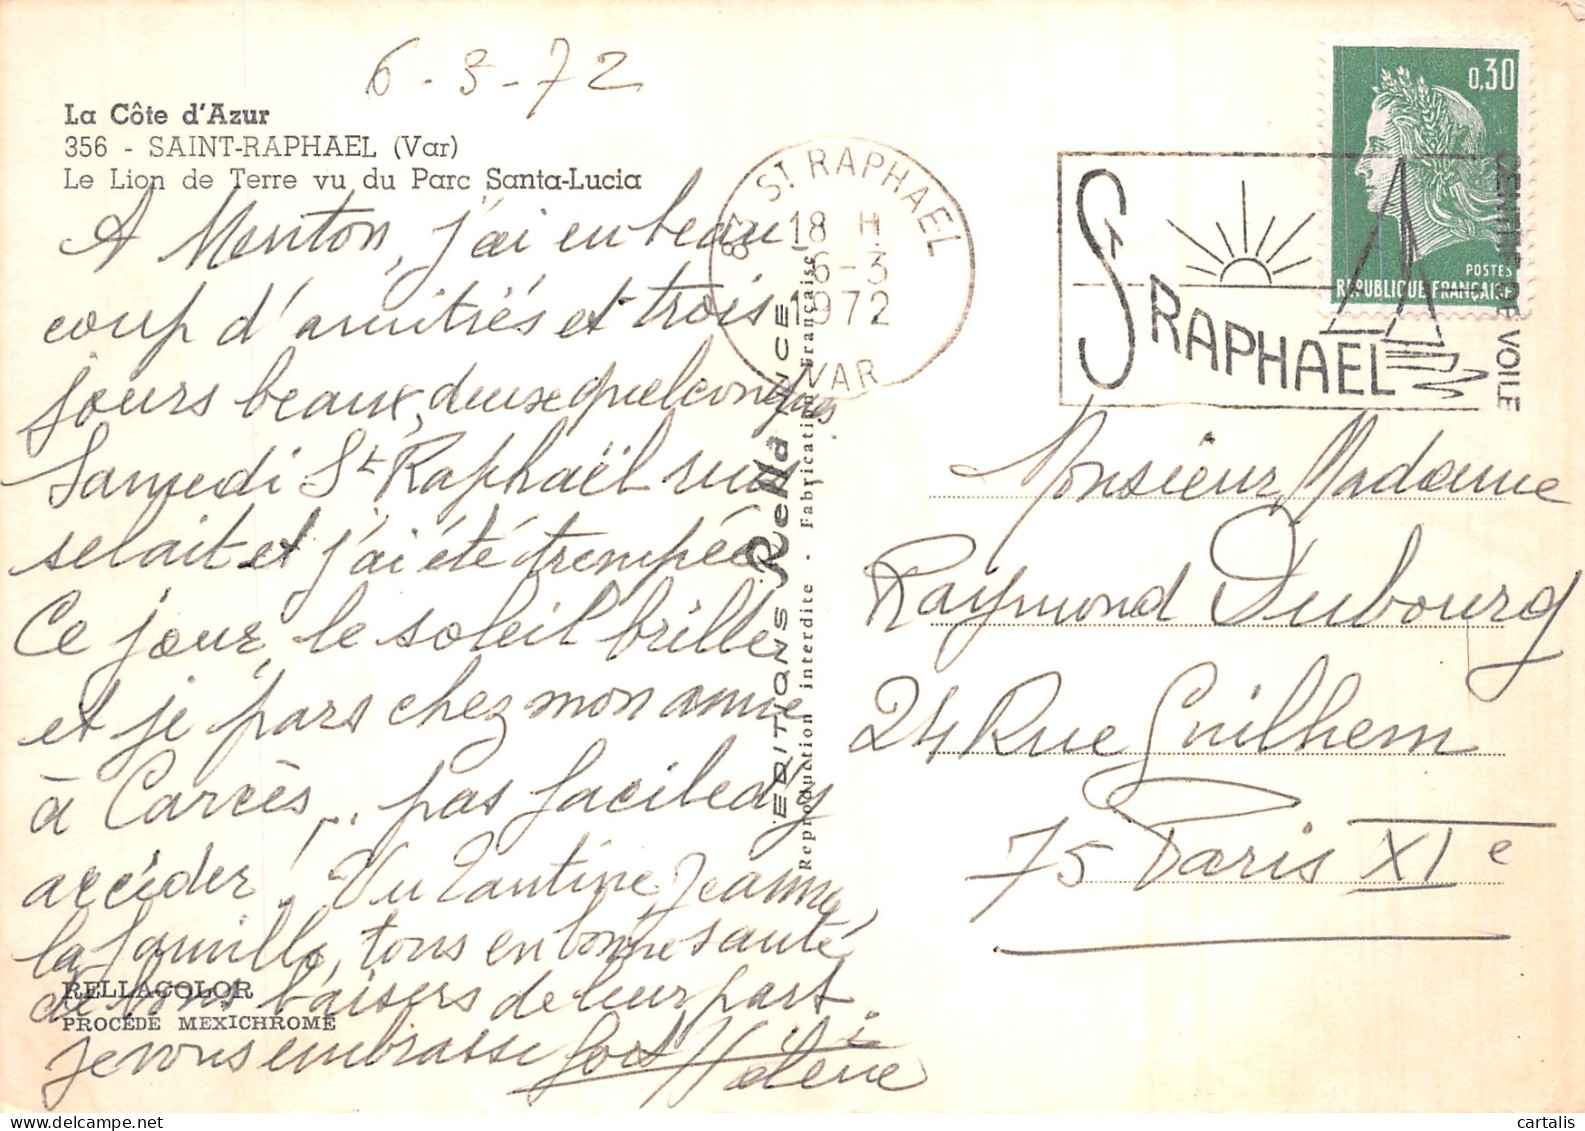 6-3-72
La Côte d'Azur
356 - SAINT-RAPHAEL (Var)
Le Lion de Terre vu du Parc Santa-Lucia
A Menton, j'ai eu beau
coup d'amitiés et trois
jours beaux, deux quelconques
Samedi St Raphaël ruis
selait et j'ai été trempée
Ce jour, le soleil brille
et je pars chez mon amie
à Carcès... pas facile d'y
accéder! Vu Tantine, Jeanne,
la famille, tous en bonne santé
de bons baisers de leur part
je vous embrasse fort Hélène
RELLACOLOR
PROCÉDÉ MEXICHROME
EDITIONS Rella NICE
Reproduction interdite - Fabrication Française
83 ST RAPHAEL
18 H
6-3
1972
VAR
ST RAPHAEL
CENTRE DE VOILE
0,30
POSTES
REPUBLIQUE FRANÇAISE
Monsieur, Madame
Raymond Dubourg
24 Rue Guilhem
75 Paris XIe
cartalis